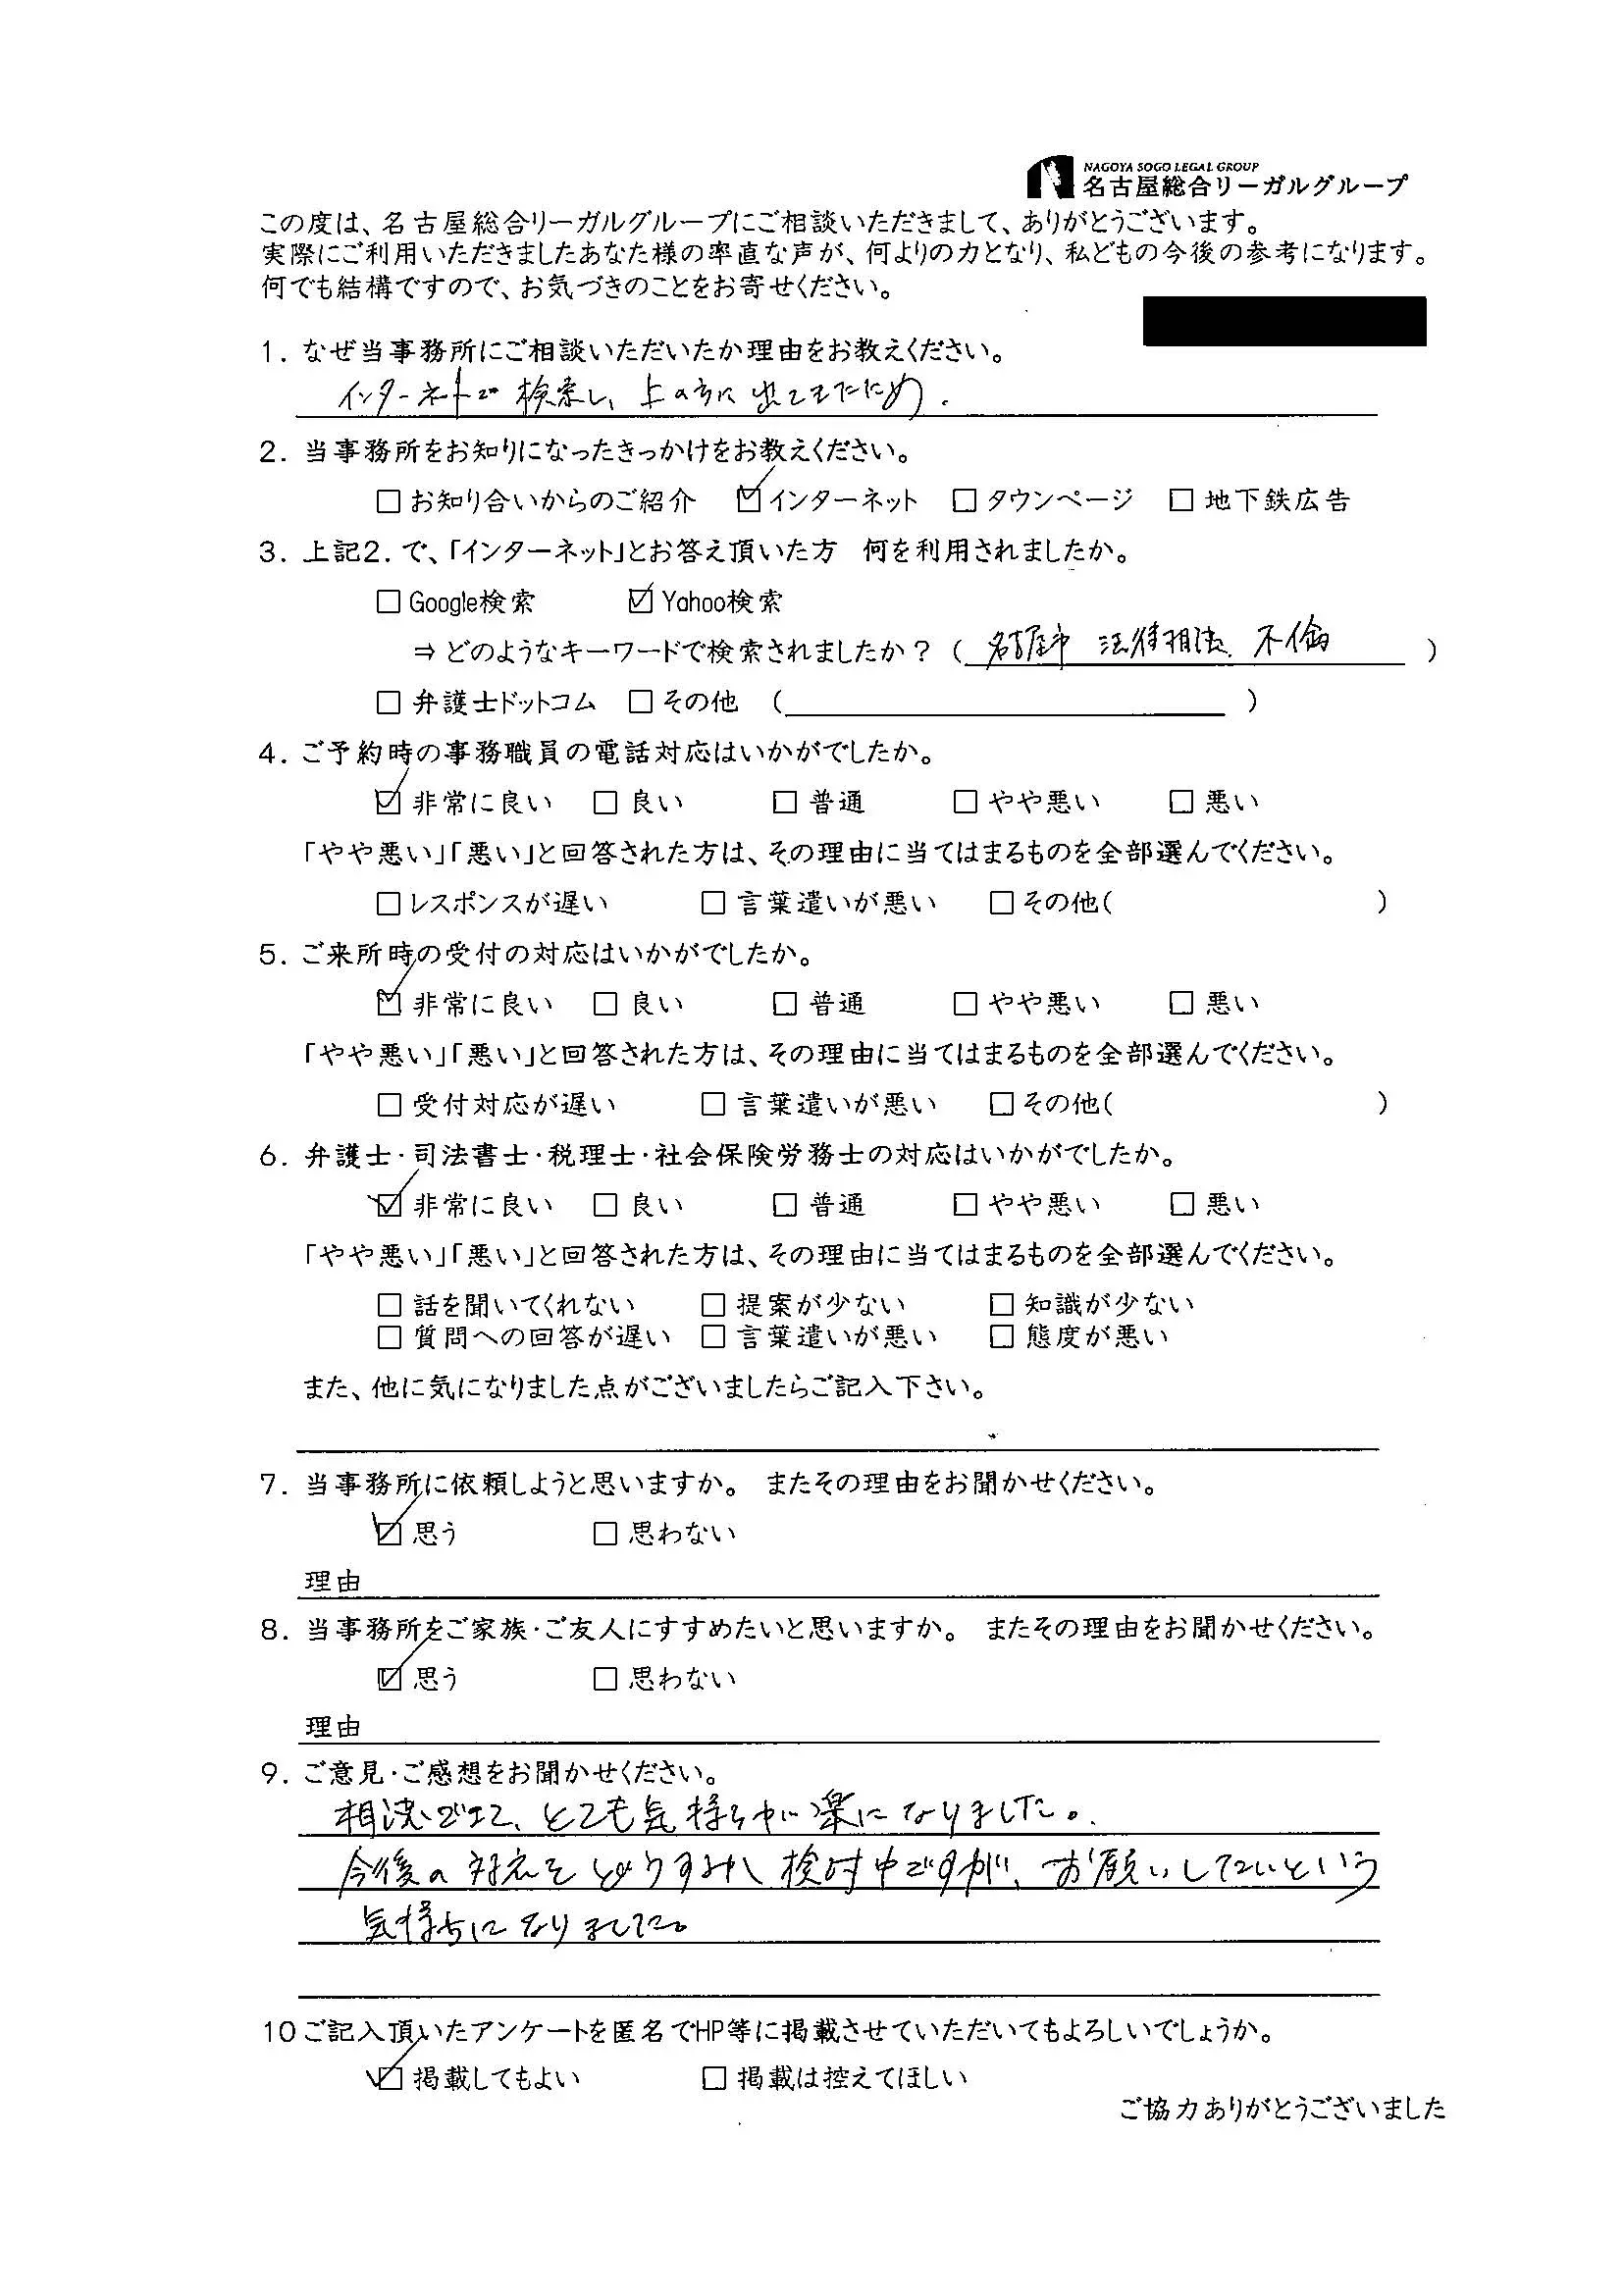 NAGOYA SOGO LEGAL GROUP
名古屋総合リーガルグループ
この度は、名古屋総合リーガルグループにご相談いただきまして、ありがとうございます。
実際にご利用いただきましたあなた様の率直な声が、何よりの力となり、私どもの今後の参考になります。
何でも結構ですので、お気づきのことをお寄せください。
1. なぜ当事務所にご相談いただいたか理由をお教えください。
インターネットで検索し、上の方に出てきたため.
2. 当事務所をお知りになったきっかけをお教えください。
□ お知り合いからのご紹介 ☑ インターネット □ タウンページ □ 地下鉄広告
3. 上記2.で、「インターネット」とお答え頂いた方 何を利用されましたか。
□ Google検索 ☑ Yahoo検索
⇒ どのようなキーワードで検索されましたか？ ( 名古屋市 法律相談 不倫 )
□ 弁護士ドットコム □ その他 ( )
4. ご予約時の事務職員の電話対応はいかがでしたか。
☑ 非常に良い □ 良い □ 普通 □ やや悪い □ 悪い
「やや悪い」「悪い」と回答された方は、その理由に当てはまるものを全部選んでください。
□ レスポンスが遅い □ 言葉遣いが悪い □ その他( )
5. ご来所時の受付の対応はいかがでしたか。
☑ 非常に良い □ 良い □ 普通 □ やや悪い □ 悪い
「やや悪い」「悪い」と回答された方は、その理由に当てはまるものを全部選んでください。
□ 受付対応が遅い □ 言葉遣いが悪い □ その他( )
6. 弁護士・司法書士・税理士・社会保険労務士の対応はいかがでしたか。
☑ 非常に良い □ 良い □ 普通 □ やや悪い □ 悪い
「やや悪い」「悪い」と回答された方は、その理由に当てはまるものを全部選んでください。
□ 話を聞いてくれない □ 提案が少ない □ 知識が少ない
□ 質問への回答が遅い □ 言葉遣いが悪い □ 態度が悪い
また、他に気になりました点がございましたらご記入下さい。
7. 当事務所に依頼しようと思いますか。 またその理由をお聞かせください。
☑ 思う □ 思わない
理由
8. 当事務所をご家族・ご友人にすすめたいと思いますか。 またその理由をお聞かせください。
☑ 思う □ 思わない
理由
9. ご意見・ご感想をお聞かせください。
相談できて、とても気持ちが楽になりました。
今後の対応をどうするか検討中ですが、お願いしたいという
気持ちになりました。
10 ご記入頂いたアンケートを匿名でHP等に掲載させていただいてもよろしいでしょうか。
☑ 掲載してもよい □ 掲載は控えてほしい
ご協力ありがとうございました